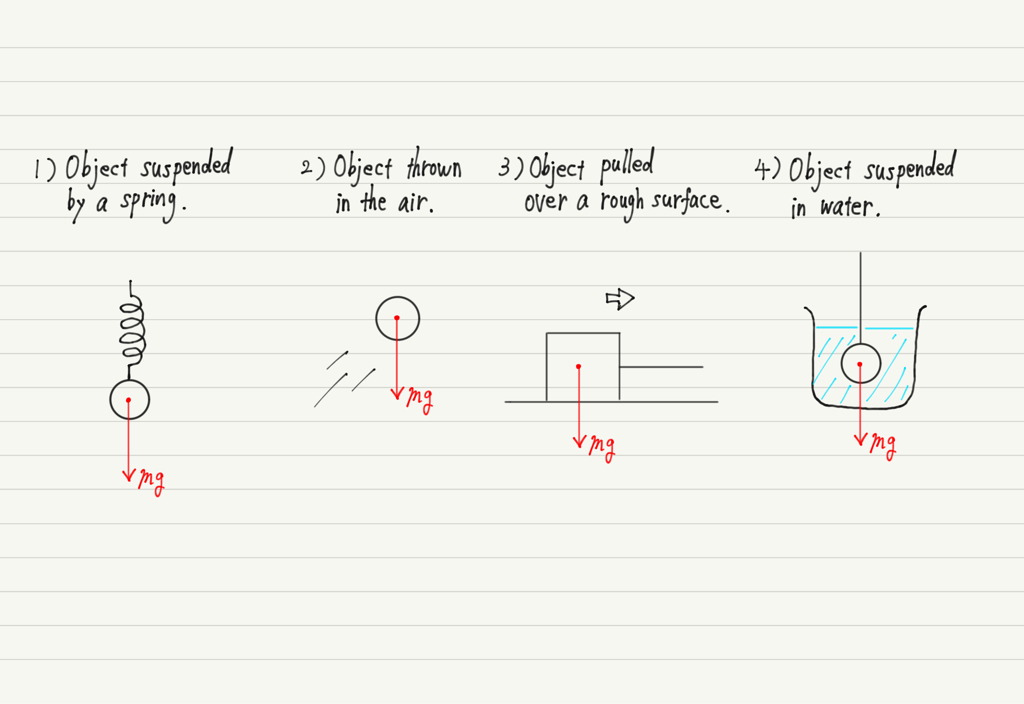 1) Object suspended
by a spring.
2) Object thrown
in the air.
3) Object pulled
over a rough surface.
4) Object suspended
in water.
mg
mg
mg
mg